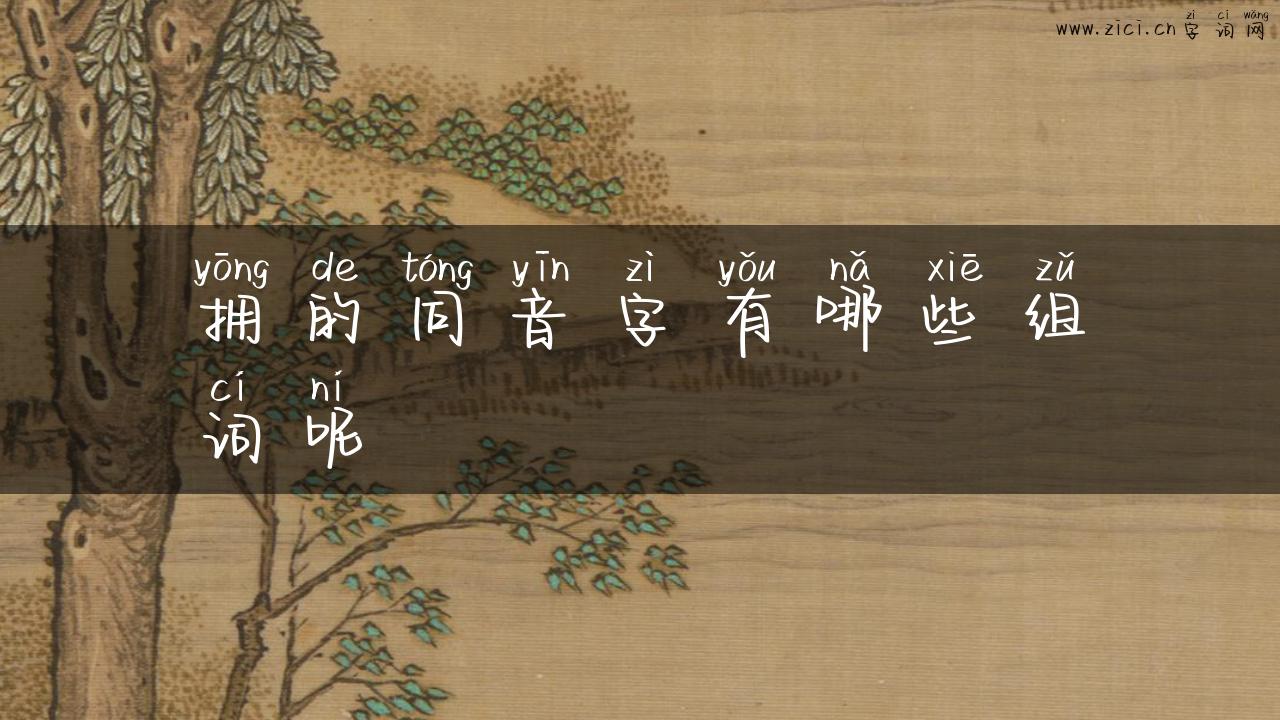 zì cí wǎng
www.zici.cn字词网
yōng de tóng yīn zì yǒu nǎ xiē zǔ
拥的同音字有哪些组
cí ní
词呢